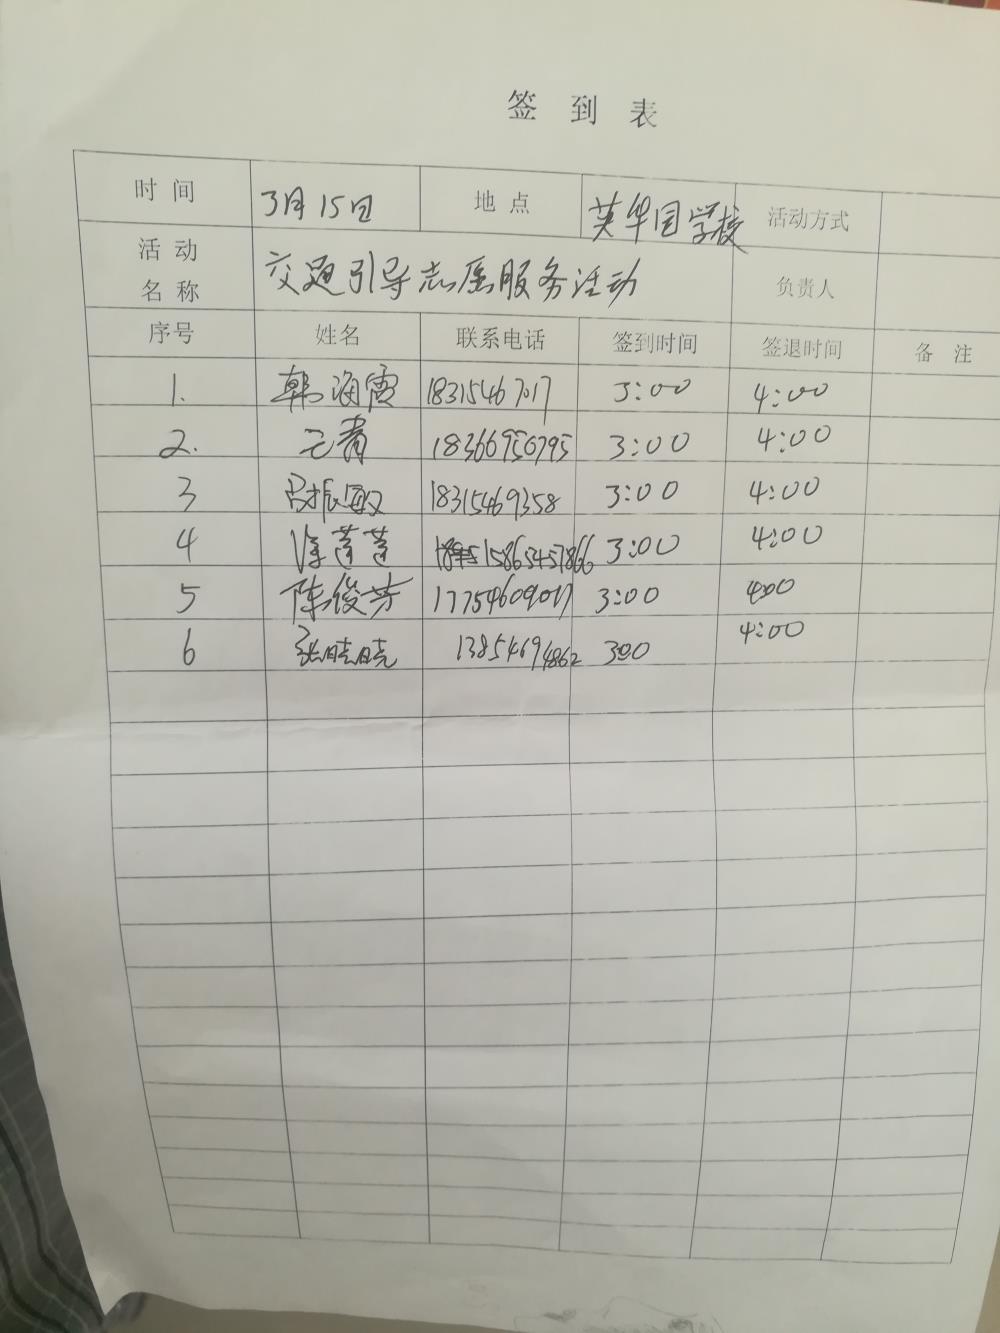 签到表
时间 3月15日 地点 英华园学校 活动方式
活动名称 交通引导志愿服务活动 负责人
序号 姓名 联系电话 签到时间 签退时间 备注
1. 韩海霞 18315467017 3:00 4:00
2. 青 18366950795 3:00 4:00
3 吕振敏 18315469358 3:00 4:00
4 徐莲莲 15865457866 3:00 4:00
5 陈俊芳 17754609017 3:00 4:00
6 张晓晓 13854694862 3:00 4:00